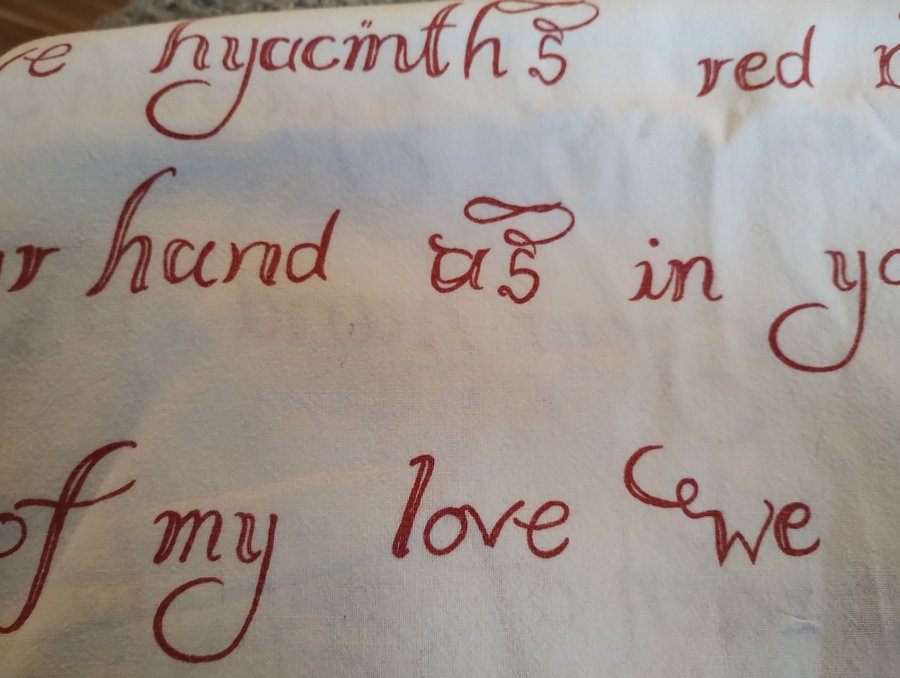 hyacinths red
hand as in
of my love we